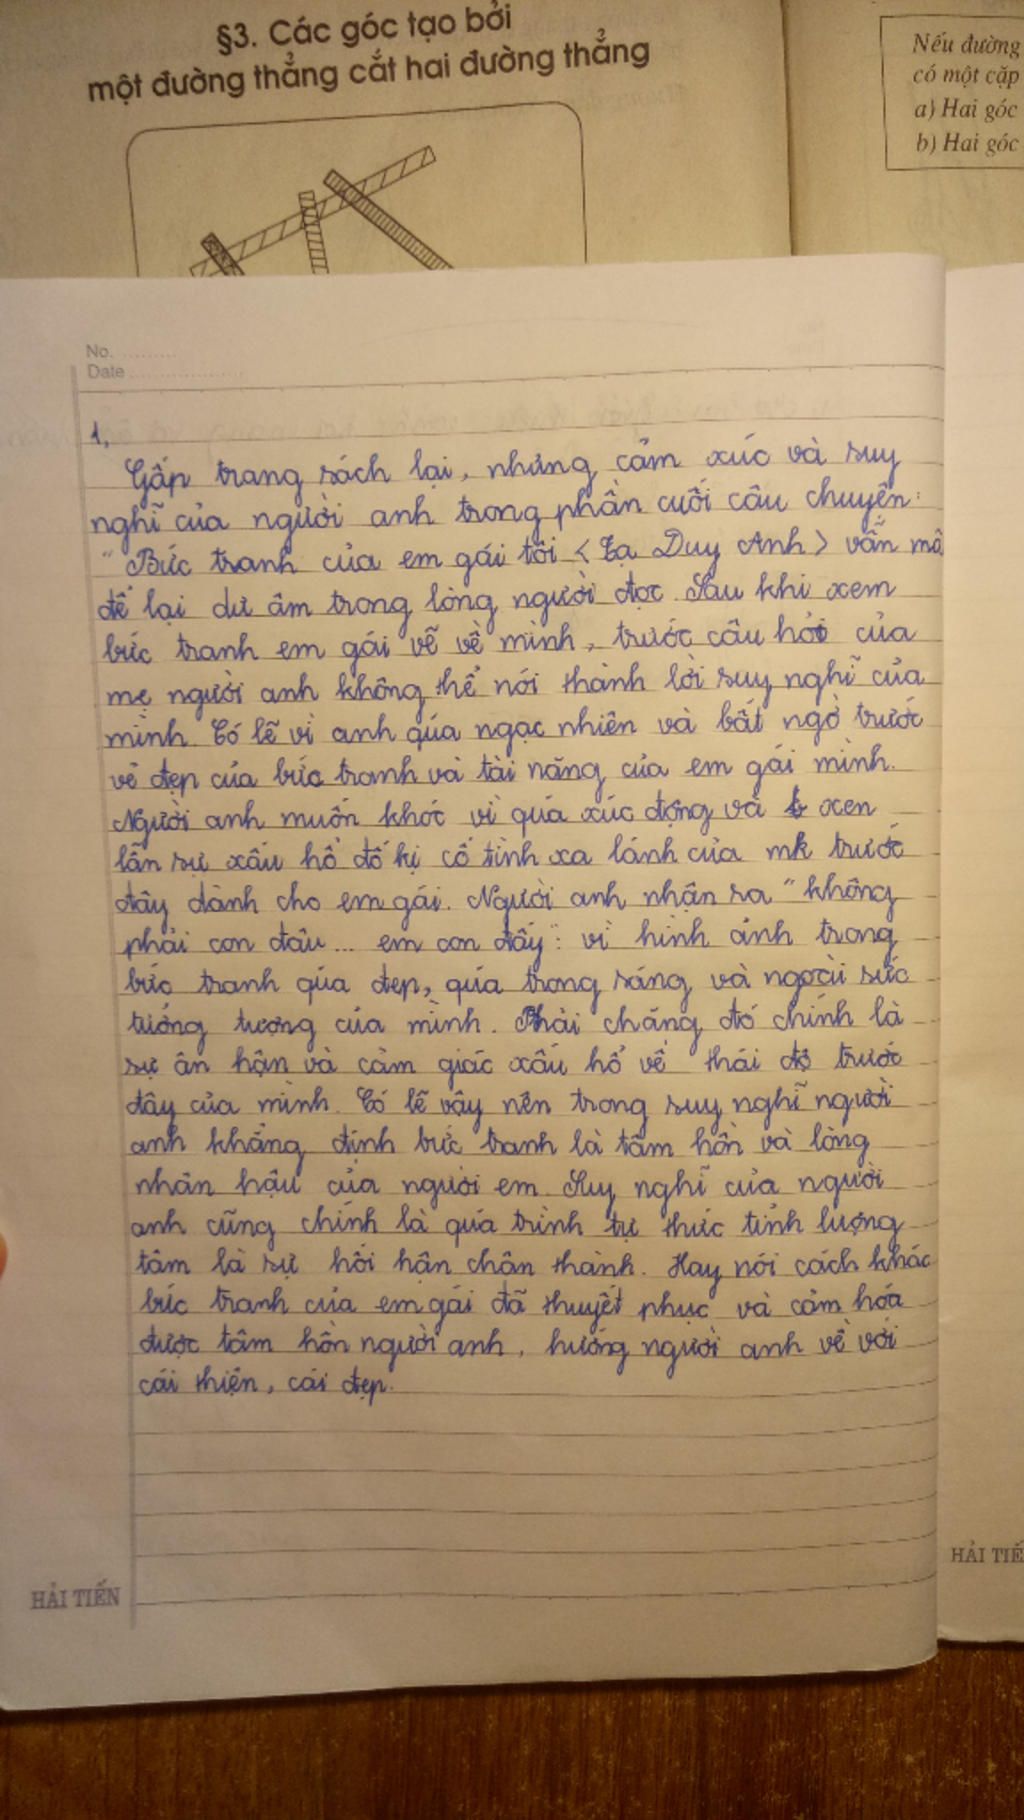 §3. Các góc tạo bởi
một đường thẳng cắt hai đường thẳng
Nếu đường
có một cặp
a) Hai góc
b) Hai góc
No. ..........
Date ....................
1,
Gấp trang sách lại, nhưng cảm xúc và suy
nghĩ của người anh trong phần cuối câu chuyện:
"Bức tranh của em gái tôi < Tạ Duy Anh > vẫn mã
để lại dư âm trong lòng người đọc. Sau khi xem
bức tranh em gái vẽ về mình, trước câu hỏi của
mẹ người anh không thể nói thành lời suy nghĩ của
mình. Có lẽ vì anh qúa ngạc nhiên và bất ngờ trước
vẻ đẹp của bức tranh và tài năng của em gái mình.
Người anh muốn khóc vì quá xúc động và xen
lẫn sự xấu hổ đố kị cố tình xa lánh của mk trước
đây dành cho em gái. Người anh nhận ra "không
phải con đâu... em con đấy": vì hình ảnh trong
bức tranh qúa đẹp, qúa trong sáng và ngoài sức
tưởng tượng của mình. Phải chăng đó chính là
sự ân hận và cảm giác xấu hổ về thái độ trước
đây của mình. Có lẽ vậy nên trong suy nghĩ người
anh khẳng định bức tranh là tâm hồn và lòng
nhân hậu của người em. Suy nghĩ của người
anh cũng chính là qúa trình tự thức tỉnh lượng
tâm là sự hối hận chân thành. Hay nói cách khác
bức tranh của em gái đã thuyết phục và cảm hóa
được tâm hồn người anh, hướng người anh về với
cái thiện, cái đẹp.
HẢI TIẾN
HẢI TIẾ